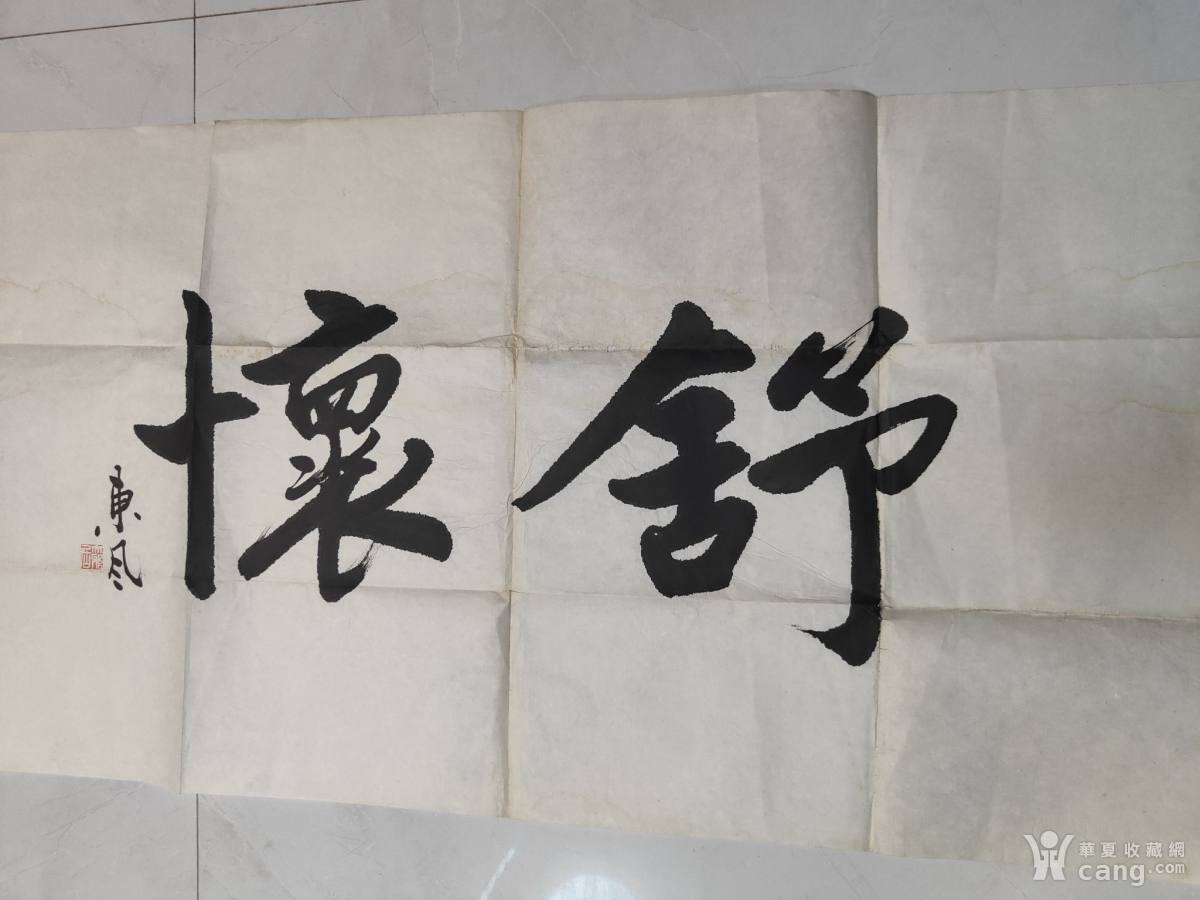 舒懷
東風
華夏收藏網
cang.com